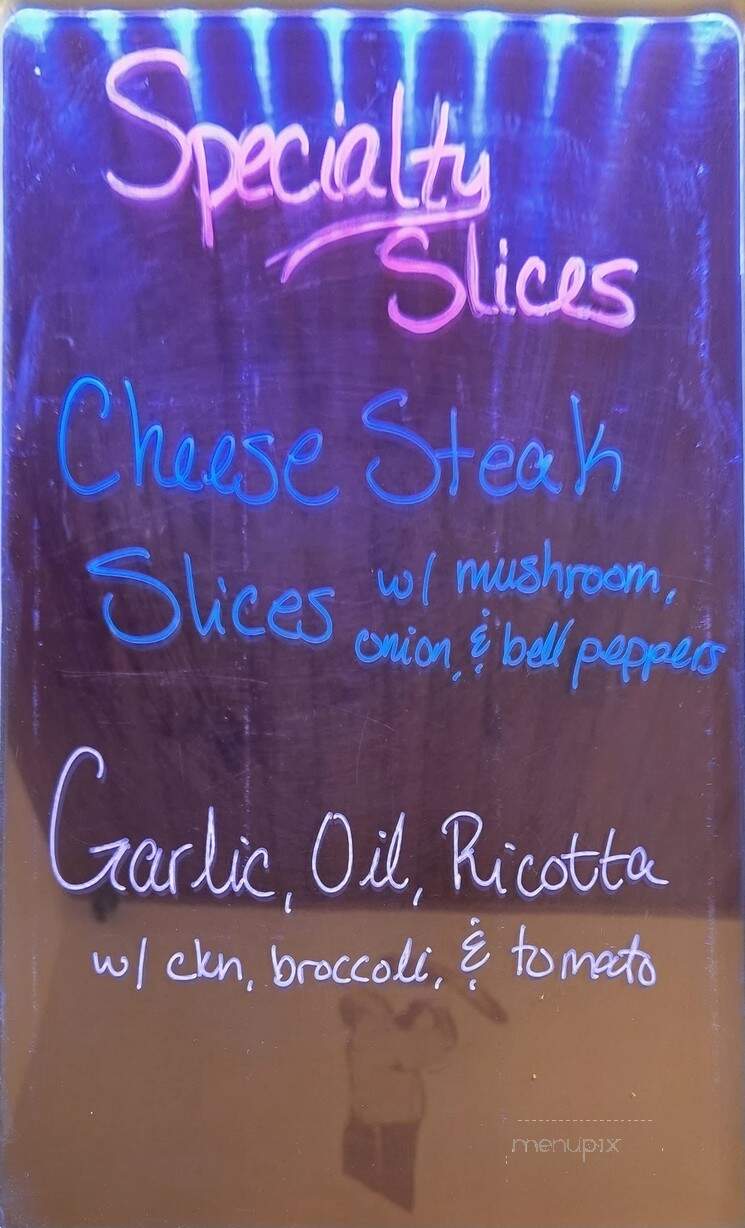 Specialty
Slices
Cheese Steak
Slices w/ mushroom,
onion, & bell peppers
Garlic, Oil, Ricotta
w/ ckn, broccoli, & tomato
menupix